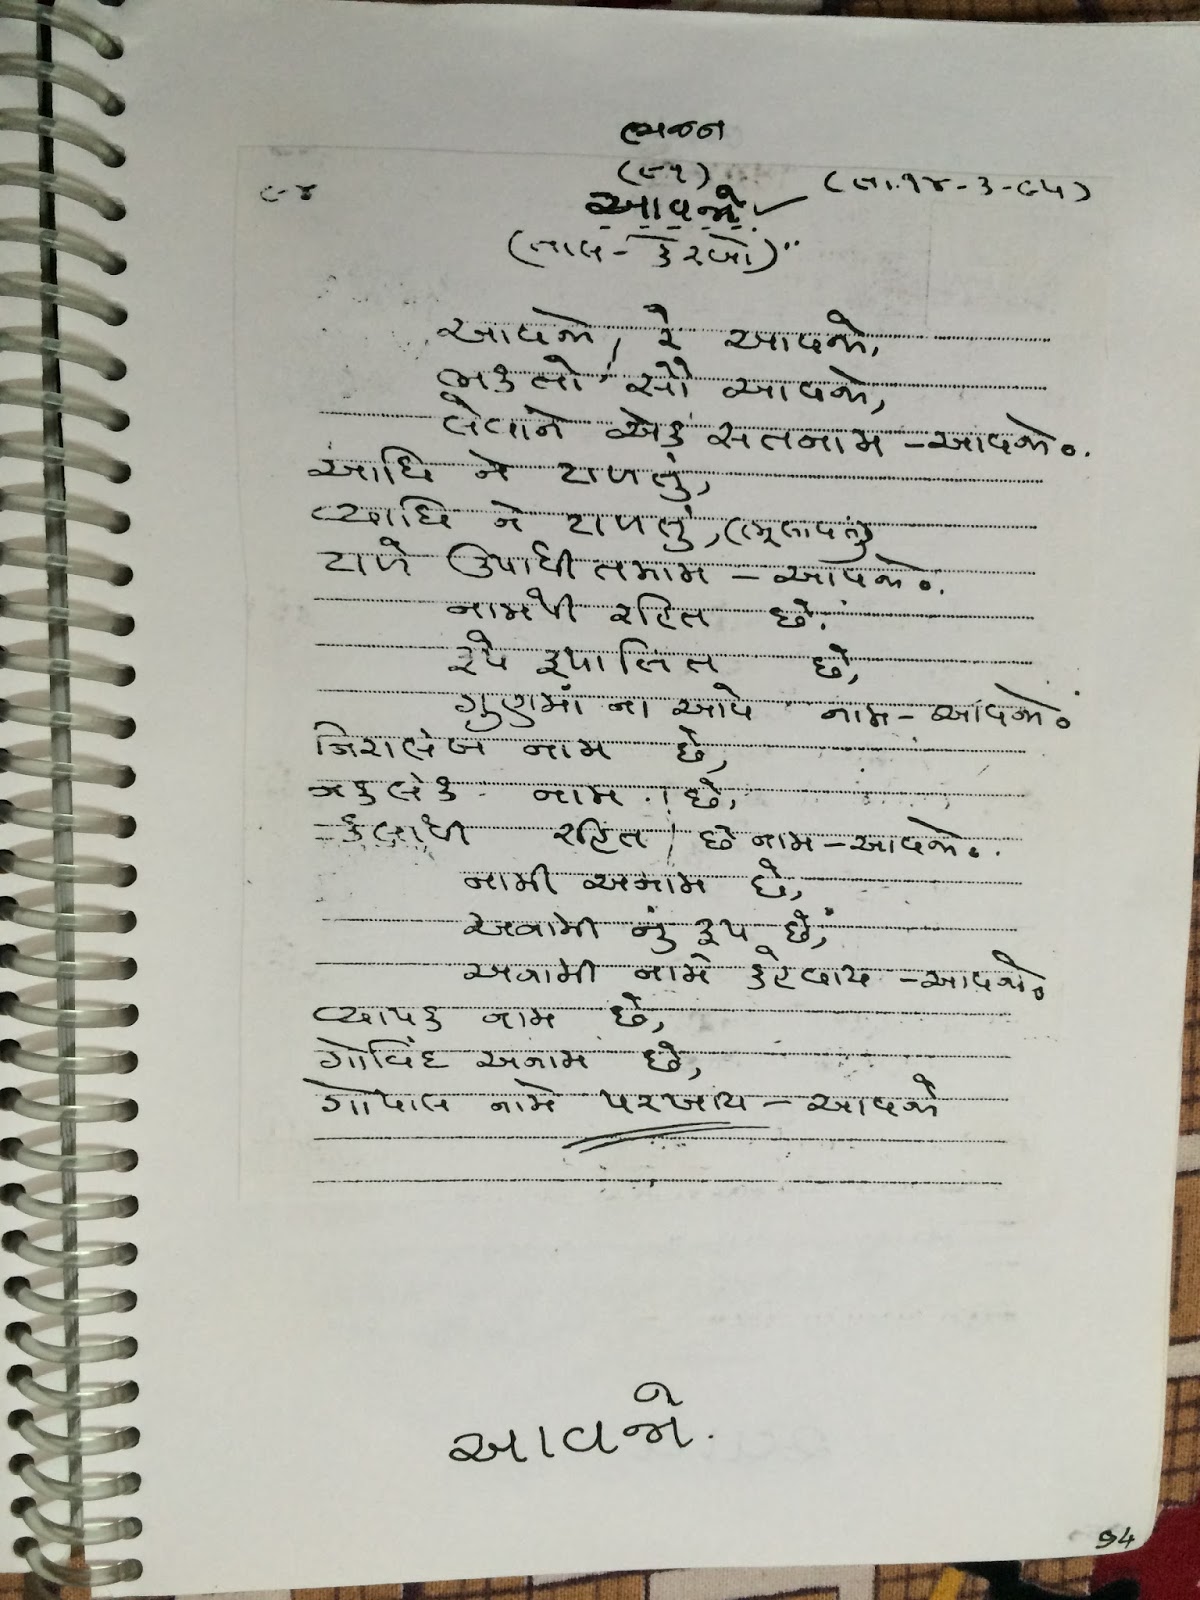 ભજન
(૯૧)
૯૪
(તા.૧૪-૩-૯૫)
આવજો
(તાલ - કેરવો)
આવજો, રે આવજો,
ભકતો સૌ આવજો,
લેવાને એક સતનામ - આવજો૦.
આધિ ને ટાળતું,
વ્યાધિ ને ટાળતું, (ભૂલાવતું)
ટાળે ઉપાધી તમામ - આવજો૦.
નામથી રહિત છે.
રૂપે રૂપાતિત છે,
ગુણમાં ના આવે નામ - આવજો૦
નિરાલંબ નામ છે,
અકલંક નામ છે,
કલાથી રહિત છે નામ - આવજો૦.
નામી અનામ છે,
અનામી નું રૂપ છે,
અનામી નામે કહેવાય - આવજો૦
વ્યાપક નામ છે,
ગોવિંદ અનામ છે,
ગોપાલ નામે પરખાય - આવજો
આવજો.
94